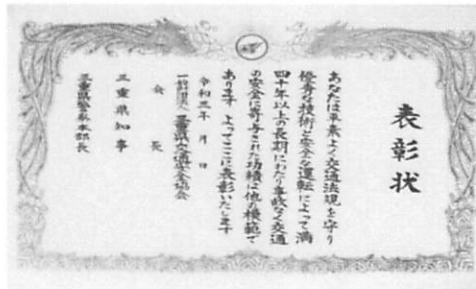 表彰状
あなたは平素よく交通法規を守り
優秀な技術と安全な運転によって満
四十年以上の長期にわたり事故なく交通
の安全に寄与された功績は他の模範で
あります よってここに表彰いたします
令和三年 月 日
一般財団法人 三重県交通安全協会
会長
三重県知事
三重県警察本部長